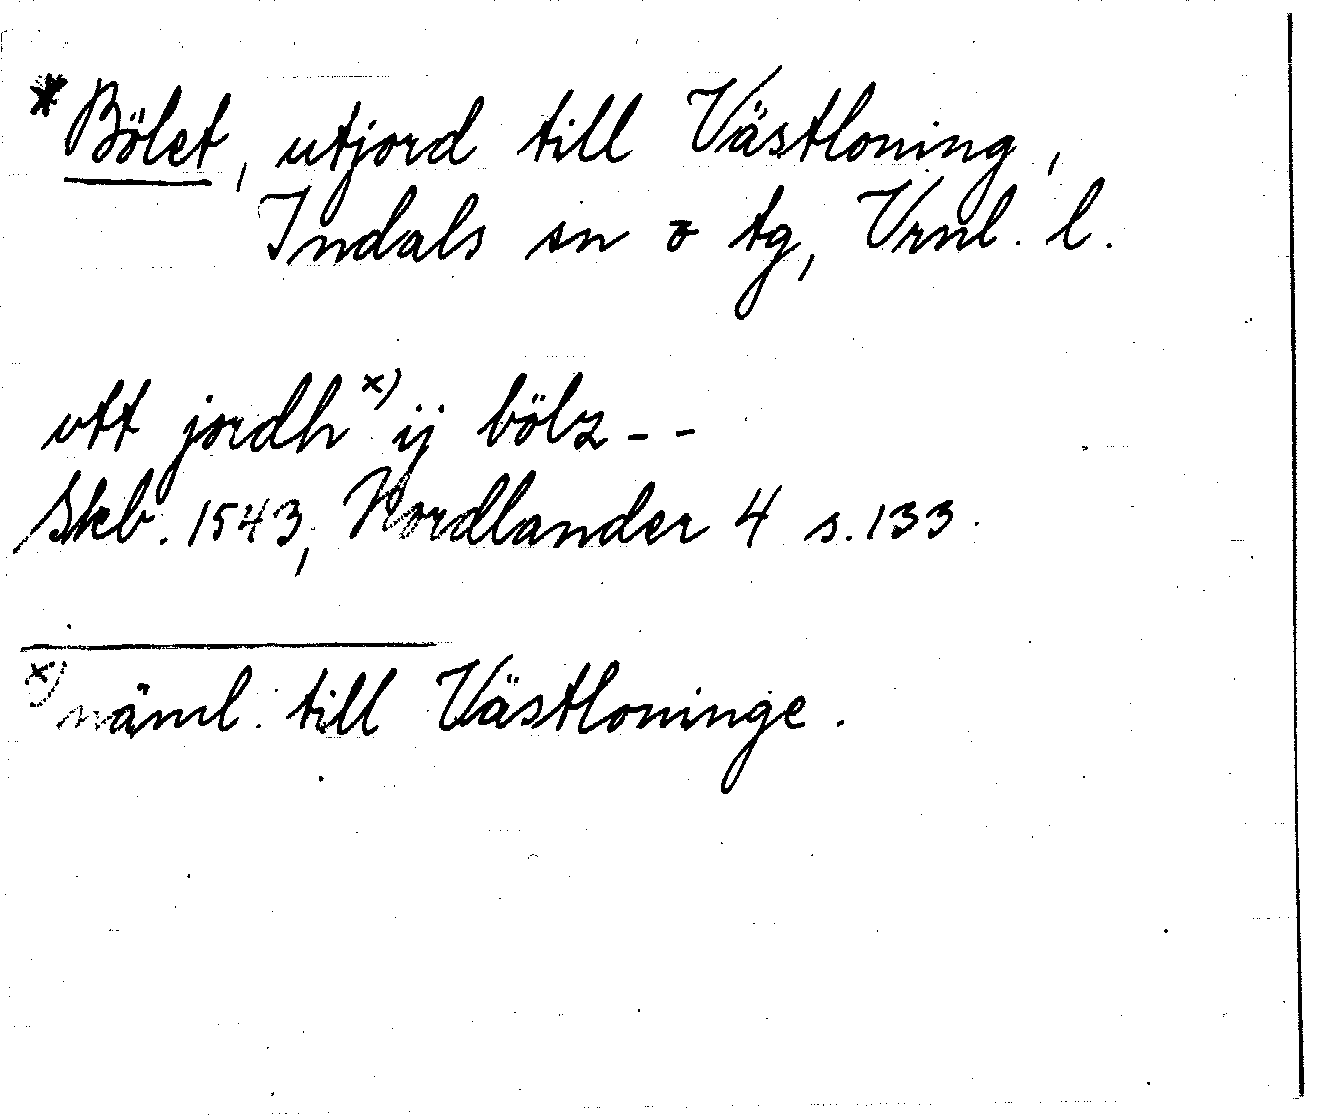 * Bölet, utjord till Västloning,
Indals sn o tg, Vrnl. l.
vtt jordh x) ij bölz - -
Skb. 1543, Nordlander 4 s. 133.
x) näml. till Västloninge.